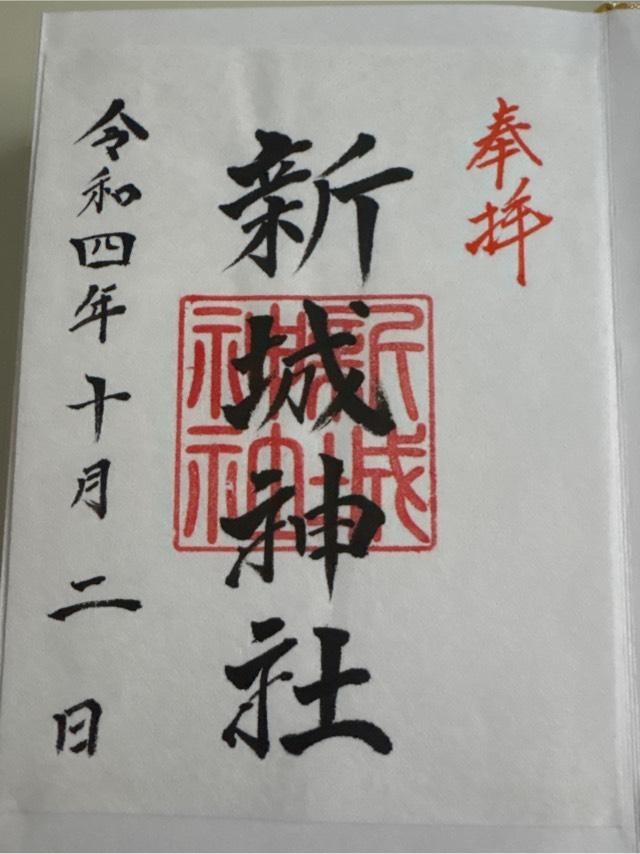 奉拝
新城神社
新城
神社
令和四年十月二日